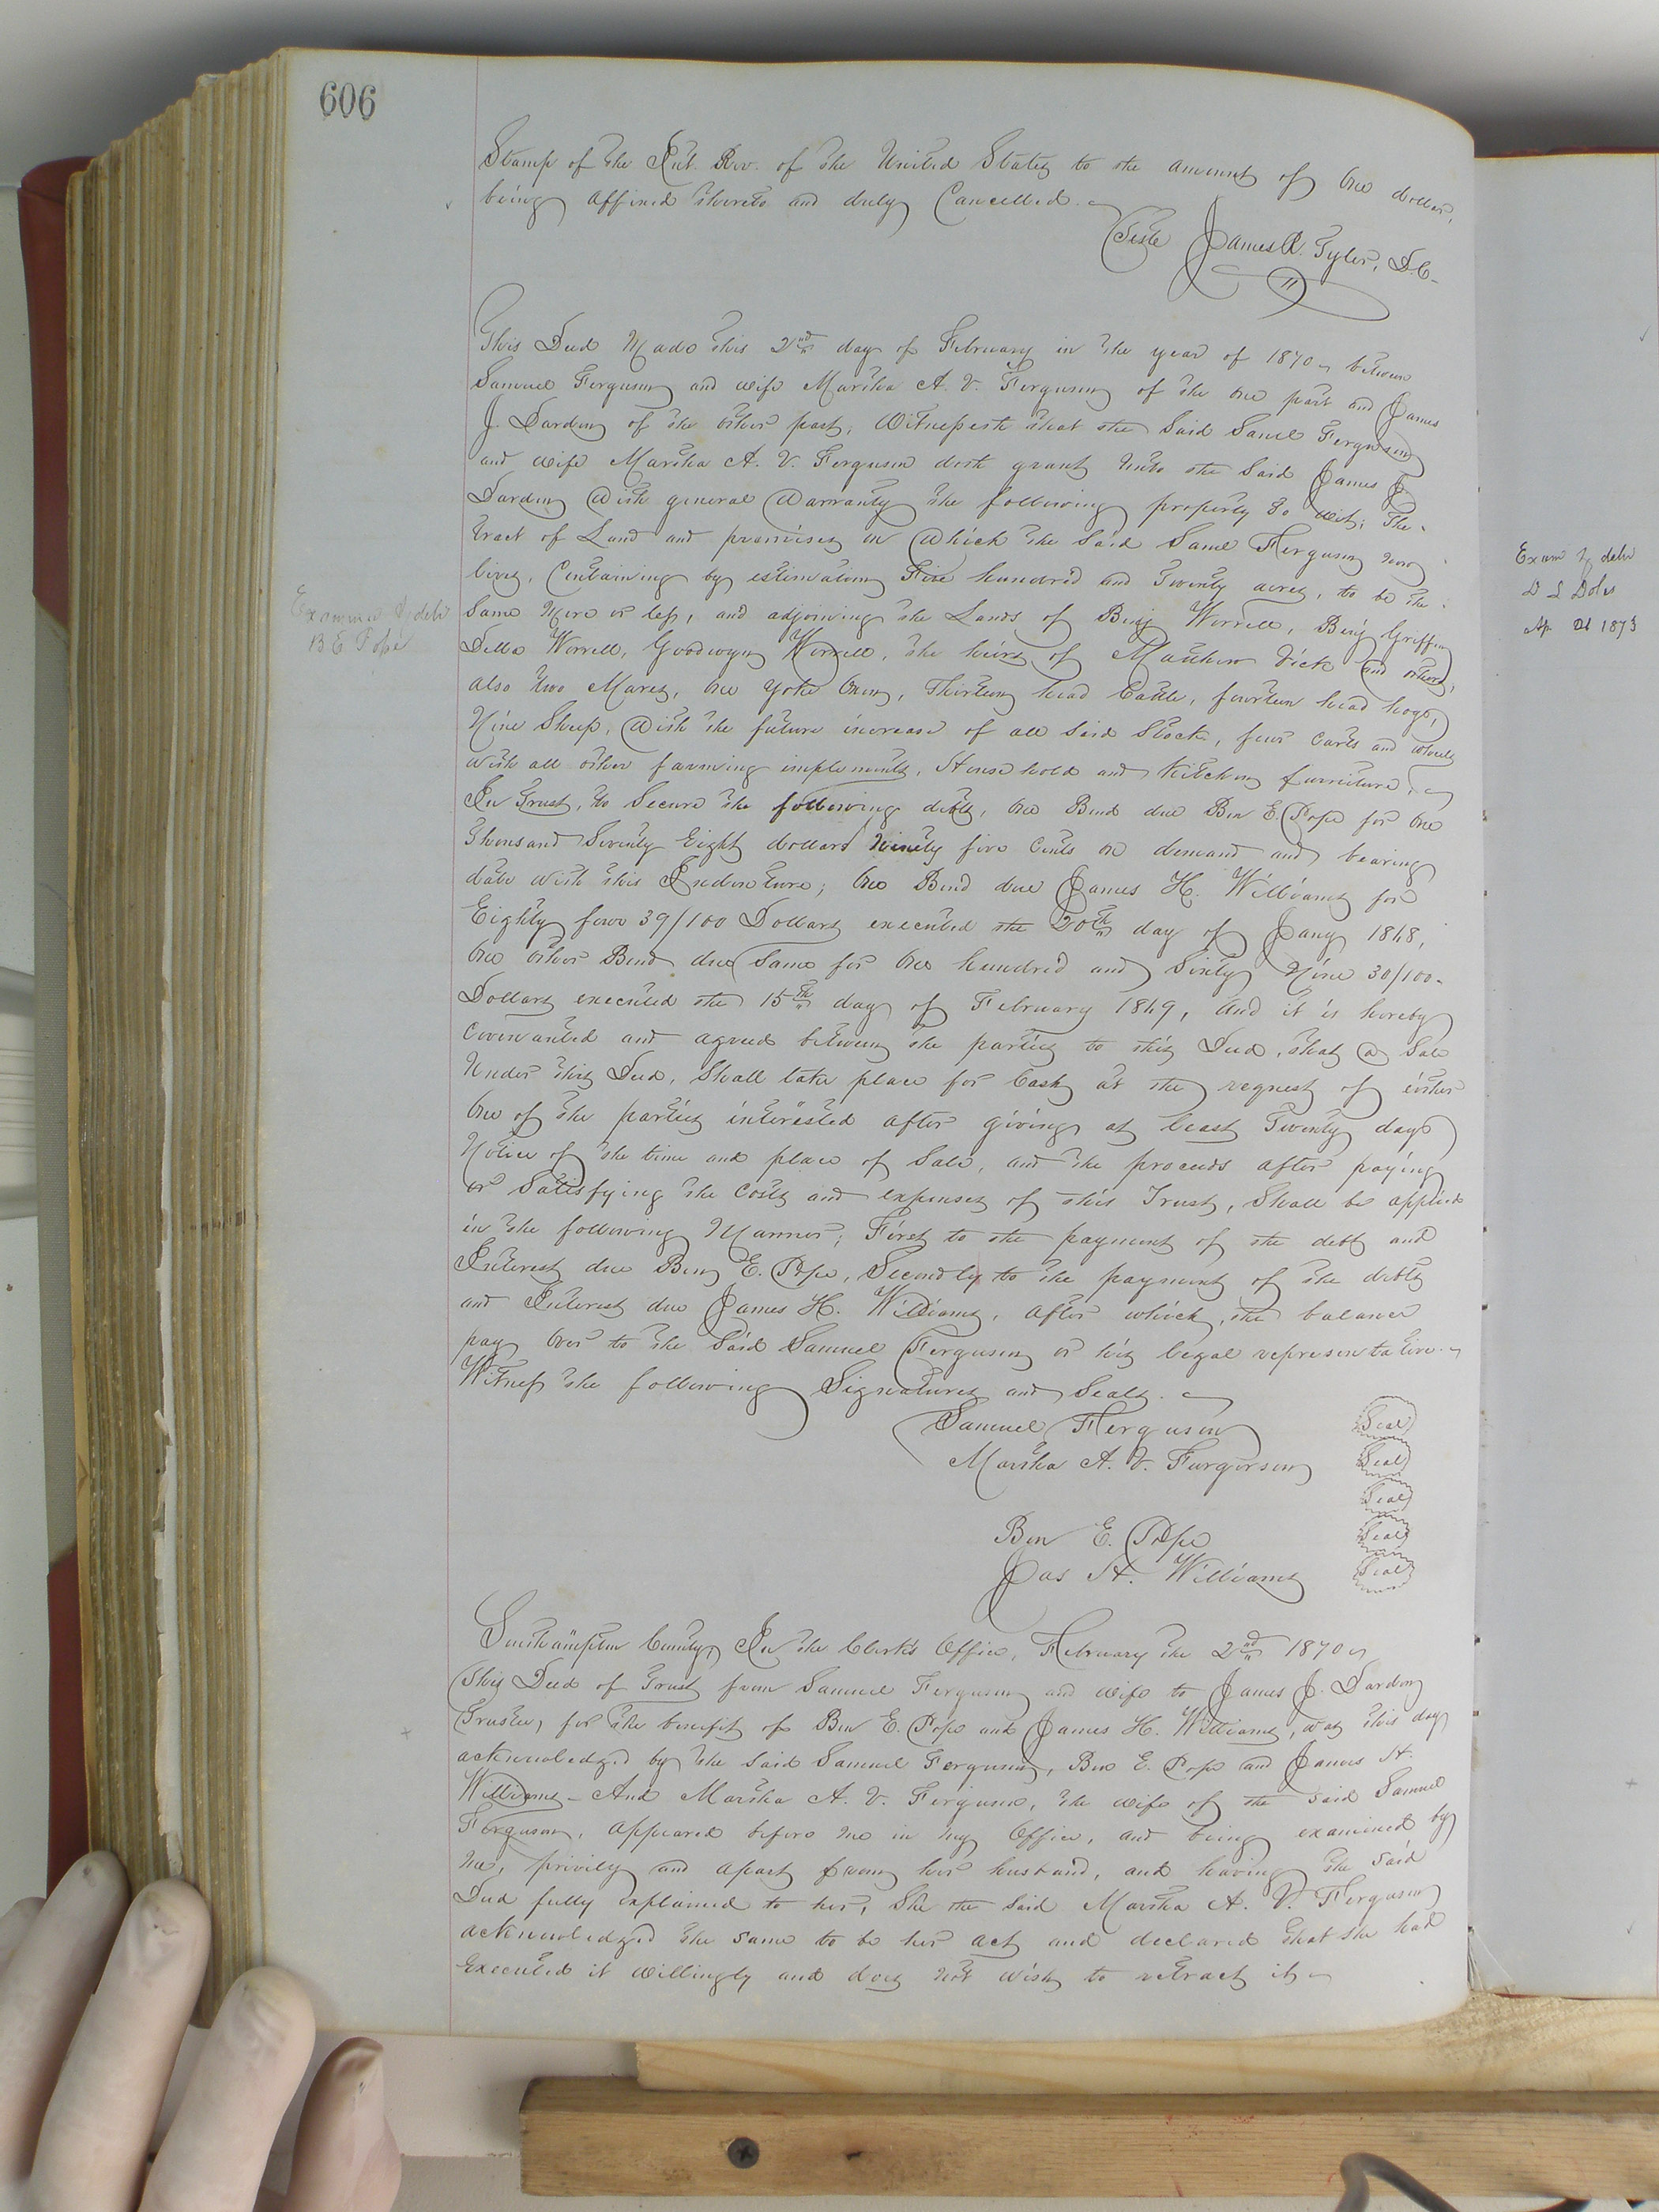 606
Stamp of the Int. Rev. of the United States to the amount of One dollar,
being affixed thereto and duly Cancelled.
Teste James R. Tyler, D.C.
This Deed Made this 2nd day of February in the year of 1870 between
Samuel Ferguson and wife Martha A. V. Ferguson of the One part and James
J. Darden of the other part, Witnesseth that the Said Saml Ferguson
and wife Martha A. V. Ferguson doth grant Unto the Said James J.
Darden With general Warranty the following property To wit; The
tract of Land and premises on Which the Said Saml Ferguson now
lives, Containing by estimation Five hundred and Twenty acres, to be the
Same More or less, and adjoining the Lands of Benj Worrell, Benj Griffin
Della Worrell, Goodwyn Worrell, the heirs of Matthew Vick and others,
also two Mares, One yoke Oxen, Thirteen head Cattle, fourteen head hogs,
Nine Sheep, With the future increase of all Said Stock, four Carts and wheels
with all other farming implements, Household and Kitchen furniture,
In Trust, to Secure the following debts, One Bond due Ben E. Pope for One
Thousand Seventy Eight dollars Ninety five Cents on demand and bearing
date with this Indenture; One Bond due James H. Williams for
Eighty four 39/100 Dollars executed the 20th day of Jany 1868,
One other Bond due Same for One hundred and Sixty Nine 30/100
Dollars executed the 15th day of February 1869, And it is hereby
Covenanted and agreed between the parties to this Deed, that a Sale
Under this Deed, Shall take place for Cash at the request of either
One of the parties interested after giving at least Twenty days
Notice of the time and place of Sale, and the proceeds after paying
or Satisfying the Costs and expenses of this Trust, Shall be applied
in the following Manner; First to the payment of the debt and
Interest due Ben E. Pope, Secondly to the payment of the debts
and Interest due James H. Williams, after which, the balance
pay Over to the Said Samuel Ferguson or his legal representative.
Witness the following Signatures and Seals.
Samuel Ferguson Seal
Martha A. V. Furgerson Seal
Seal
Ben E. Pope Seal
Jas H. Williams Seal
Southampton County, In the Clerk's Office, February the 2nd 1870
This Deed of Trust from Samuel Ferguson and wife to James J. Darden
Trustee, for the benefit of Ben E. Pope and James H. Williams, was this day
acknowledged by the Said Samuel Ferguson, Ben E. Pope and James H.
Williams - And Martha A. V. Ferguson, the wife of the Said Samuel
Ferguson, appeared before me in my Office, and being examined by
me, privily and apart from her husband, and having the Said
Deed fully explained to her, She the Said Martha A. V. Ferguson
acknowledged the Same to be her act and declared that She had
Executed it willingly and does not wish to retract it
Examined & deld
B E Pope
Exam & deld
D L Doles
Ap 1873